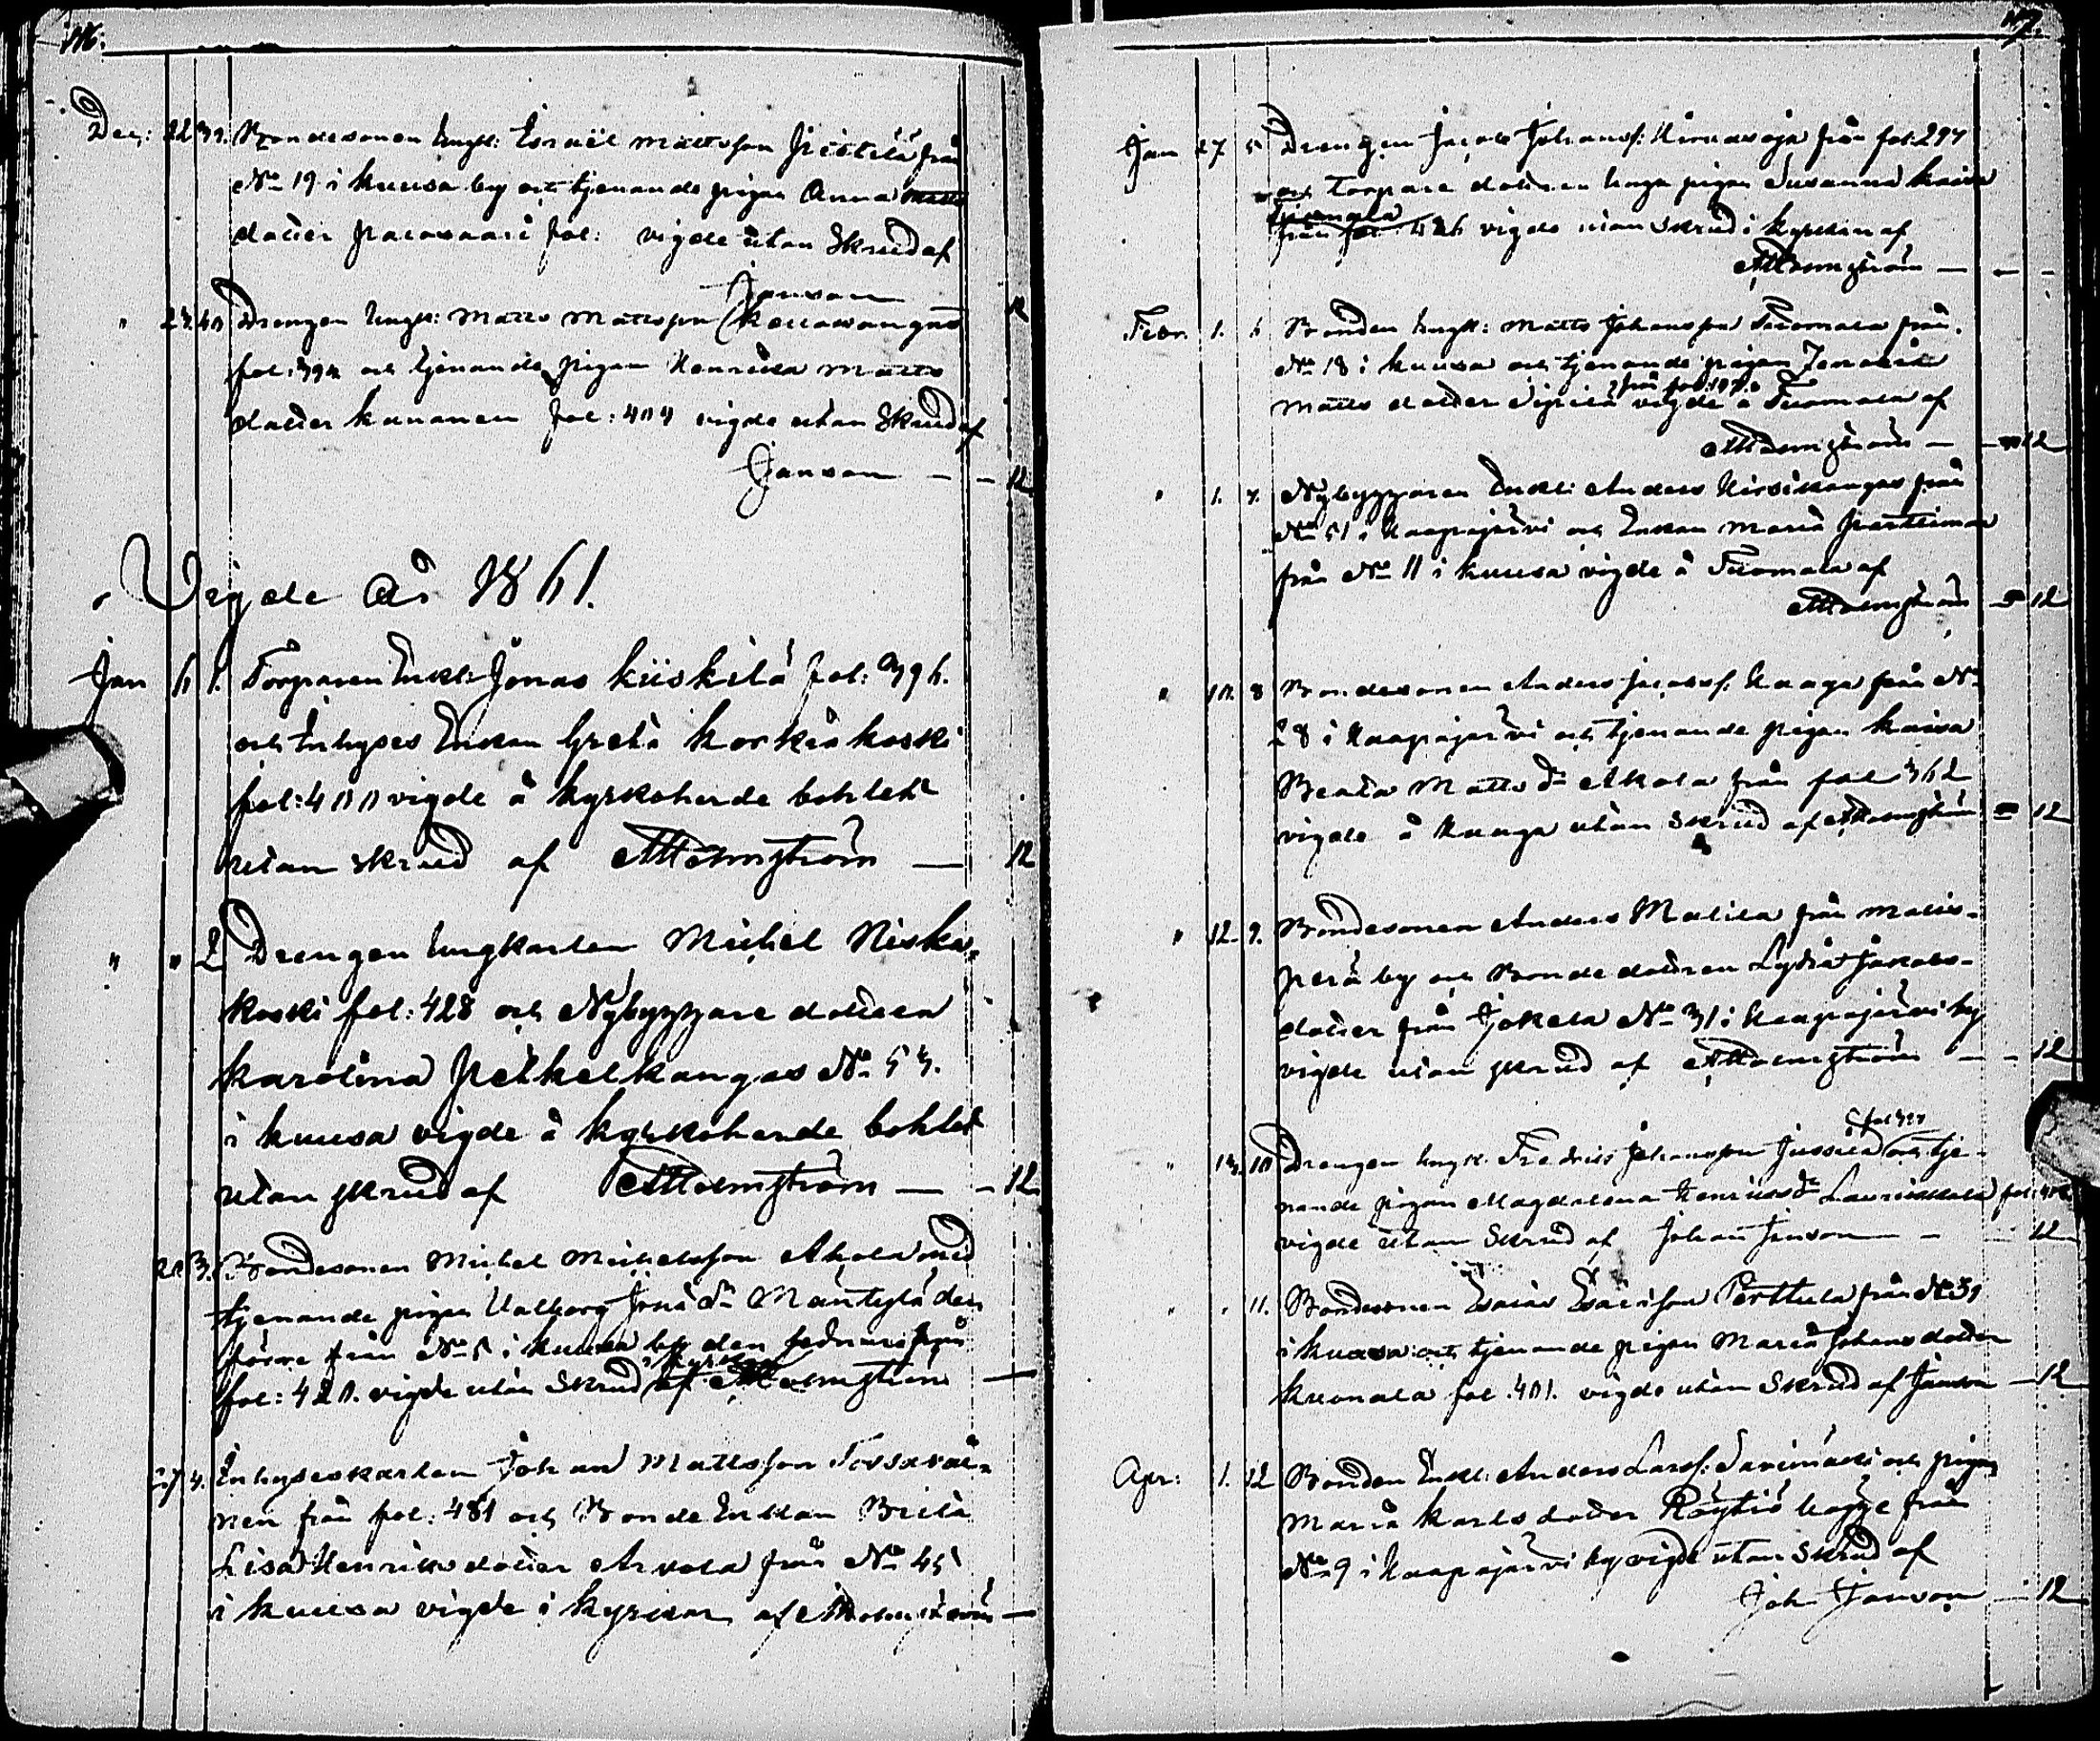 116.
Dec: 22 39. Bondesonen Ungk: Israël Mattsson Pistilä från
No 19 i Kuusa by och tjenande pigan Anna Matts
dotter Palovaari fol: vigde utan Skrud af
Janson
" 23. 40 Drengen Ungk: Matts Mattsson Kellarangas 12
fol: 392 och tjenande pigan Henrika Matts
dotter Kananen fol: 404 vigde utan Skrud af
Janson — 12
Vigde år 1861.
Jan 6 1. Torparen Enkl: Jonas Kiiskilä fol: 396.
och Inhyses Enkan Greta Korkiakoski
fol: 400 vigde å Kyrkoherde bohlet
utan skrud af AHolmström — 12
" " 2 Drengen Ungkarlen Michel Niska-
koski fol: 428 och Nybyggare dottren
Karolina Petkelkangas No 53.
i Kuusa vigde å Kyrkoherde bohlet
utan skrud af AHolmström — 12
20 3. Bondesonen Michel Michelsson Ahola med
tjenande pigan Walborg Jonä dr Mäntylä den
förre från No 5 i Kuusa by den sednare från
i kyrkan
fol: 420. vigde utan Skrud af AHolmström —
27 4. Inhyseskarlen Johan Mattsson Tossavai-
nen från fol: 481 och Bonde Enkan Brita
Lisa Henriksdotter Arvola från No 45
i Kuusa vigde i kyrkan af AHolmström —
117.
Jan 27 5 Drengen Jacob Johanss: Kirnasoja från fol: 297
och Torpare dottren Unga pigan Susanna Kaisa
Tuomala
från fol 426 vigde utan skrud i kyrkan af
AHolmström —
Febr. 1. 6 Bonden Ungk: Matts Johansson Tuomala från
No 18 i Kuusa och tjenande pigan
från fol:
Matts dotter Sipilä vigde å Tuomala af
AHolmström — 12
" 1. 7. Nybyggaren Enkl: Anders Hirsikangas från
No 51 i Haapajärvi och Enkan Maria Parttimaa
från No 11 i Kuusa vigde å Tuomala af
AHolmström — 12
" 10. 8 Bondesonen Anders Jacobss: Haaga från No
28 i Haapajärvi och tjenande pigan Kaisa
Beata Matts dr Ahola från fol 362
vigde å Haaga utan skrud af AHolmström — 12
" 12. 9. Bondesonen Anders Matila från Matis-
perä by och Bonde dottren Lydia Jakobs-
dotter från Jokela No 31 i Haapajärvi by
vigde utan skrud af AHolmström — 12
" 13. 10 Drengen Ungk. Fredrik Johansson Jussila och tje-
nande pigan Magdalena Henriks dr Laurikkala fol:
vigde utan Skrud af Johan Janson — 12
" " 11. Bondesonen Esaias Esaiasson Perttula från No 39
i Kuusa och tjenande pigan Maria Johans dotter
Kuonala fol: 401. vigde utan Skrud af Janson — 12
Apr: 1. 12 Bonden Enkl: Anders Larss: Savimäki och pigan
Maria Karls dotter Röytiö begge från
No 9 i Haapajärvi by vigde utan skrud af
Joh Janson — 12